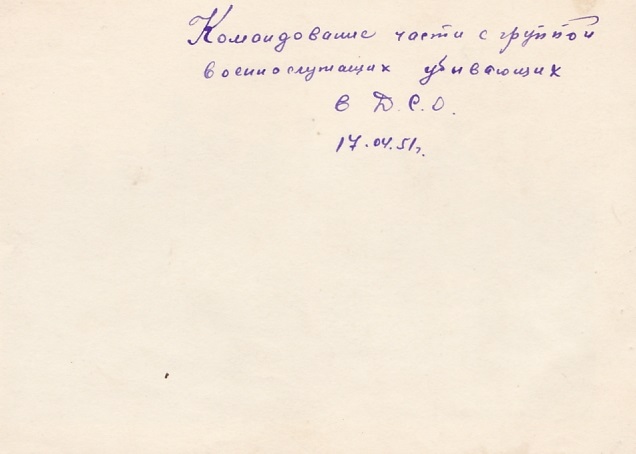 Командование части с группой
военнослужащих убывающих
в Д.С.О.
17.04.51г.